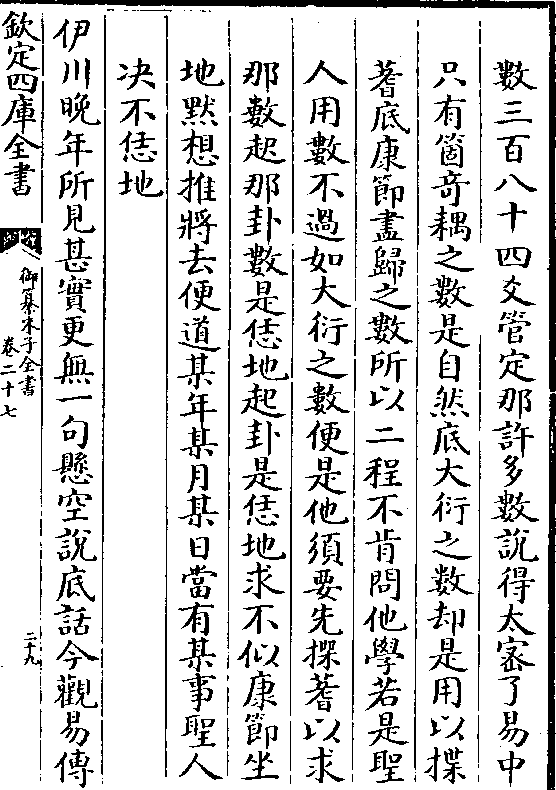 數三百八十四爻管定那許多數說得太宻了易中
只有箇竒耦之數是自然底大衍之數却是用以揲
蓍底康節盡歸之數所以二程不肯問他學若是聖
人用數不過如大衍之數便是他須要先揲蓍以求
那數起那卦數是恁地起卦是恁地求不似康節坐
地黙想推將去便道某年某月某日當有某事聖人
决不恁地
伊川晩年所見甚實更無一句懸空說底話今觀易傳
欽定四庫全書
御纂朱子全書
卷二十七
二十九